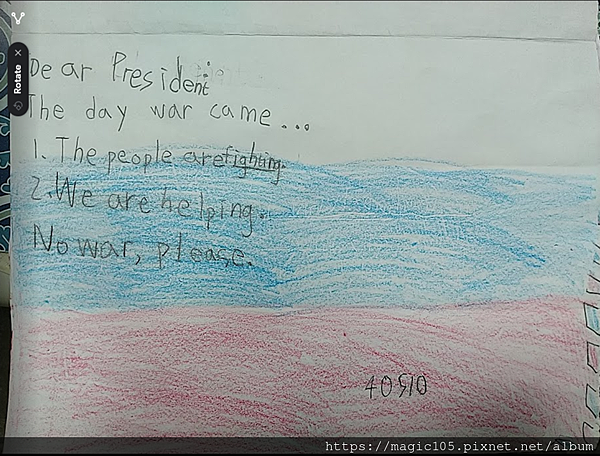 Dear President
The day war came...
1. The people are fighting.
2. We are helping.
No war, please.
40510
Rotate
https://magic105.pixnet.net/album